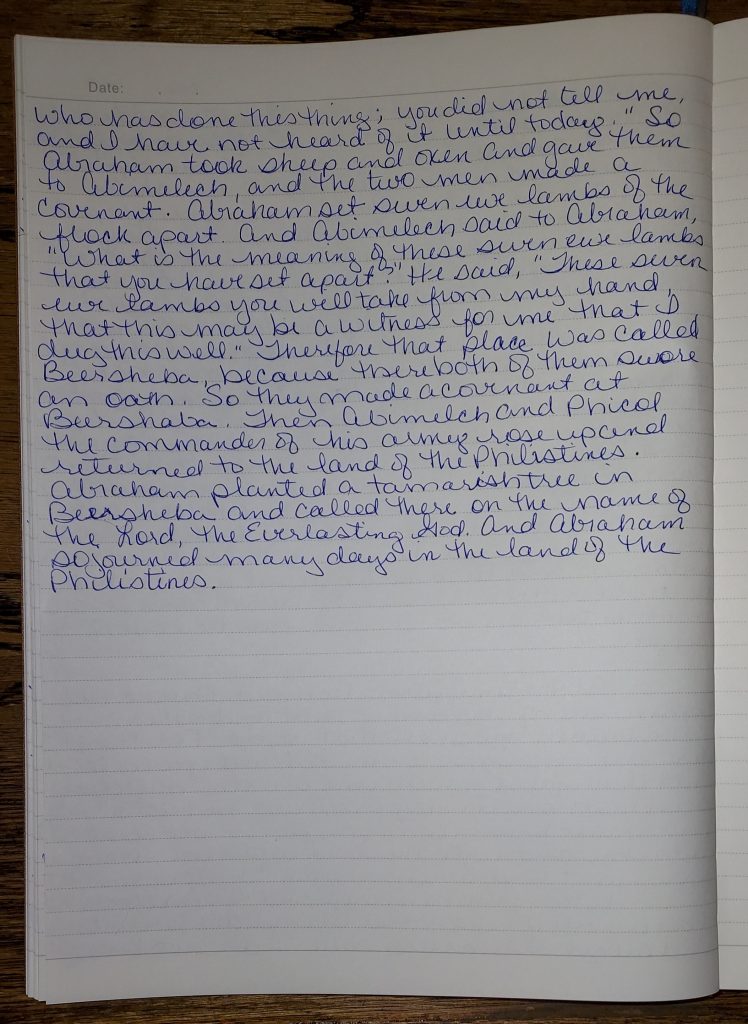 Date:
who has done this thing; you did not tell me,
and I have not heard of it until today." So
Abraham took sheep and oxen and gave them
to Abimelech, and the two men made a
covenant. Abraham set seven ewe lambs of the
flock apart. And Abimelech said to Abraham,
"What is the meaning of these seven ewe lambs
that you have set apart?" He said, "These seven
ewe lambs you will take from my hand,
that this may be a witness for me that I
dug this well." Therefore that place was called
Beersheba, because there both of them swore
an oath. So they made a covenant at
Beershaba. Then Abimelch and Phicol
the commander of his army rose up and
returned to the land of the Philistines.
Abraham planted a tamarish tree in
Beersheba and called there on the name of
the Lord, the Everlasting God. And Abraham
sojourned many days in the land of the
Philistines.